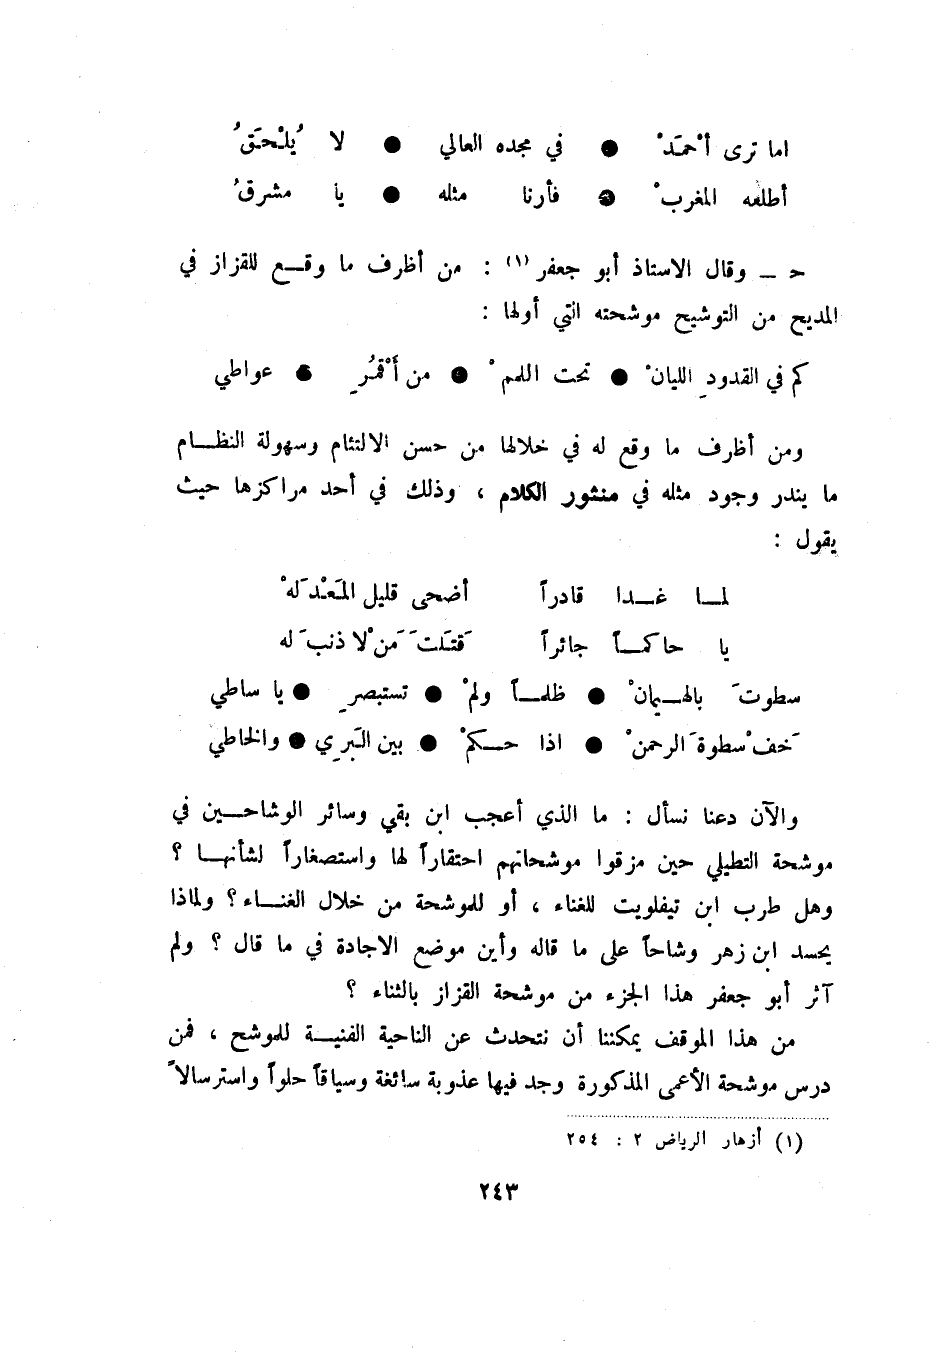 اما ترى أحمَدْ ● في مجده العالي ● لا يُلْحَقُ
أطلعه المغربْ ● فأرنا مثله ● يا مشرقُ
حـ ــ وقال الاستاذ أبو جعفر (١) : من أظرف ما وقـــع للقزاز في
المديح من التوشيح موشحته التي أولها :
كم في القدودِ الليانْ ● تحت اللممْ ● من أَقْمُرٍ ● عواطي
ومن أظرف ما وقع له في خلالها من حسن الالتئام وسهولة النظـــام
ما يندر وجود مثله في منثور الكلام ، وذلك في أحد مراكزها حيث
يقول :
لمـــا غـــدا قادراً أضحى قليل المَعْدَلهْ
يا حاكمـــاً جائراً قَتَلتَ مَنْ لا ذنبَ له
سطوتَ بالهـــيمانْ ● ظلمـــاً ولمْ ● تستبصرِ ● يا ساطي
خَفْ سطوةَ الرحمنْ ● اذا حـــكمْ ● بين البَرِي ● والخاطي
والآن دعنا نسأل : ما الذي أعجب ابن بقي وسائر الوشاحـــين في
موشحة التطيلي حين مزقوا موشحاتهم احتقاراً لها واستصغاراً لشأنهـــا ؟
وهل طرب ابن تيفلويت للغناء ، أو للموشحة من خلال الغنـــاء ؟ ولماذا
يحسد ابن زهر وشاحاً على ما قاله وأين موضع الاجادة في ما قال ؟ ولم
آثر أبو جعفر هذا الجزء من موشحة القزاز بالثناء ؟
من هذا الموقف يمكننا أن نتحدث عن الناحية الفنيـــة للموشح ، فمن
درس موشحة الأعمى المذكورة وجد فيها عذوبة سائغة وسياقاً حلواً واسترسالاً
(١) أزهار الرياض ٢ : ٢٥٤
٢٤٣